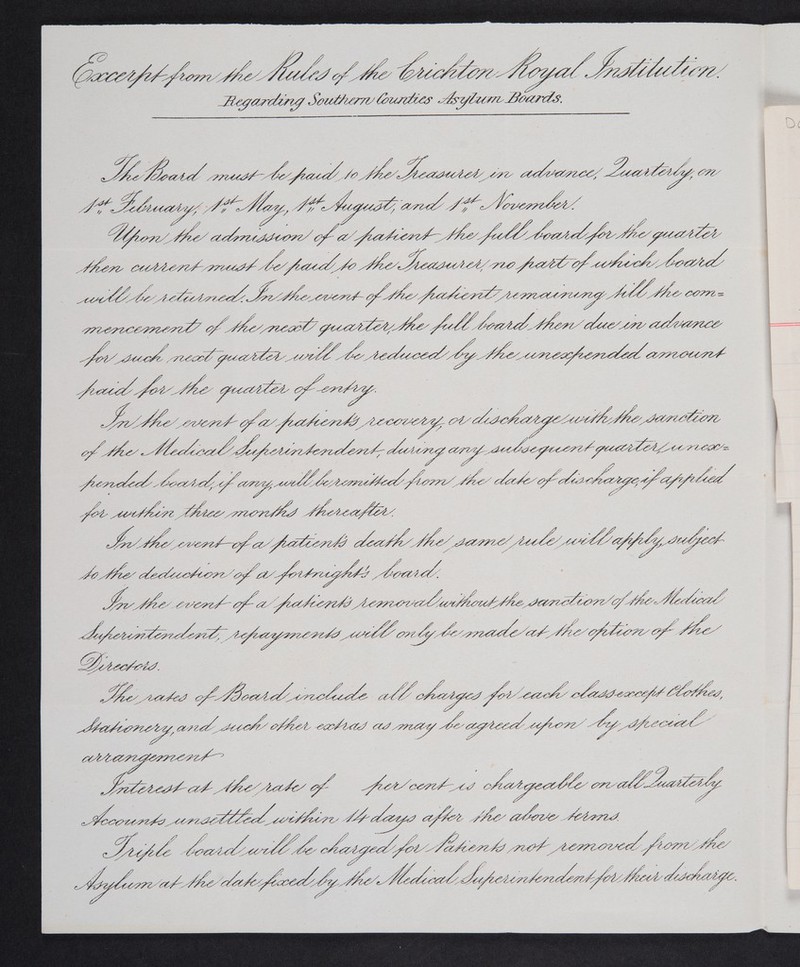 Excerpt from the Rules of the Crichton Royal Institution.
Regarding Southern Counties Asylum Boards.
The Board must be paid to the Treasurer in advance, Quarterly, on
1st February, 1st May, 1st August, and 1st November.
Upon the admission of a patient the full board for the quarter
then current must be paid to the Treasurer, no part of which board
will be returned. In the event of the patient remaining till the com=
mencement of the next quarter, the full board then due in advance
for such next quarter will be reduced by the unexpended amount
paid for the quarter of entry.
In the event of a patient's recovery, or discharge with the sanction
of the Medical Superintendent, during any subsequent quarter, unex=
pended board, if any, will be remitted from the date of discharge, if applied
for within three months thereafter.
In the event of a patient's death the same rule will apply, subject
to the deduction of a fortnight's board.
In the event of a patient's removal without the sanction of the Medical
Superintendent, repayments will only be made at the option of the
Directors.
The rates of Board include all charges for each class except Clothes,
Stationery, and such other extras as may be agreed upon by special
arrangement
Interest at the rate of per cent is chargeable on all Quarterly
Accounts unsettled within 14 days after the above terms.
Triple board will be charged for Patients not removed from the
Asylum at the date fixed by the Medical Superintendent for their discharge.